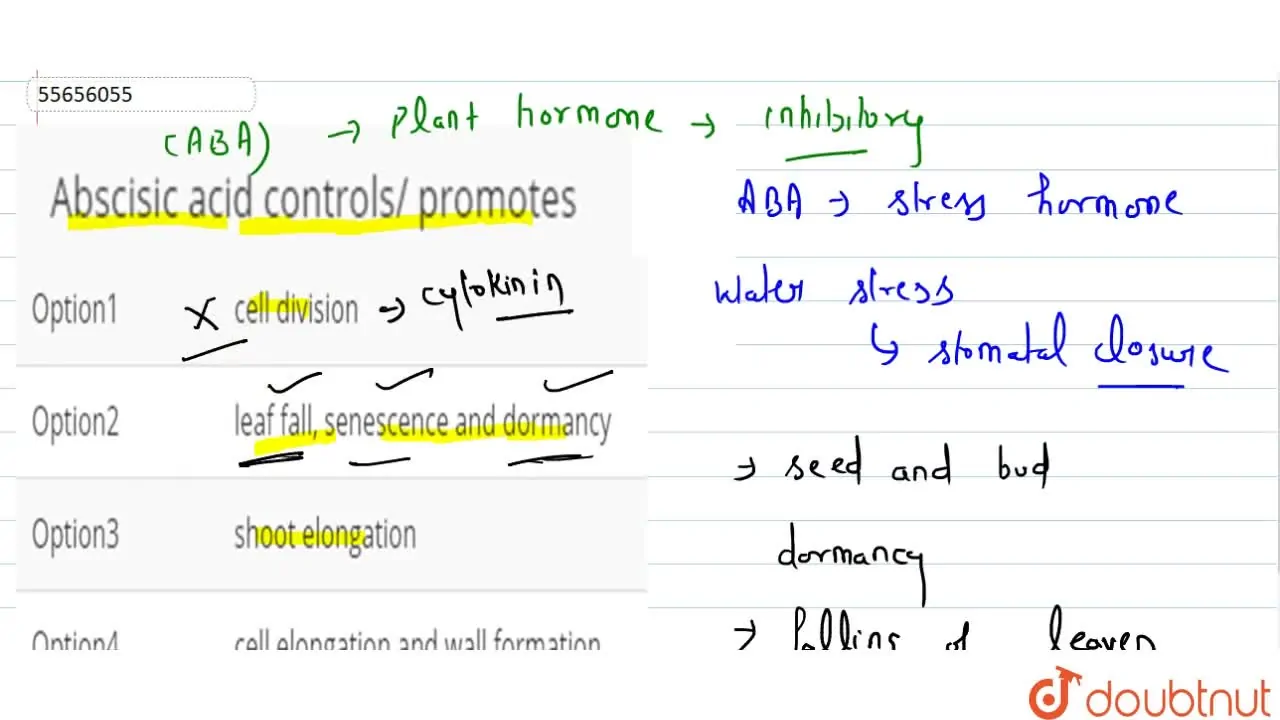 55656055
(ABA) → Plant hormone → inhibitory
Abscisic acid controls/ promotes
ABA → stress hormone
Option1 X cell division → cytokinin
Water stress
↳ stomatal closure
Option2 leaf fall, senescence and dormancy
→ seed and bud
dormancy
Option3 shoot elongation
Option4 cell elongation and wall formation
→ falling of leaves
doubtnut